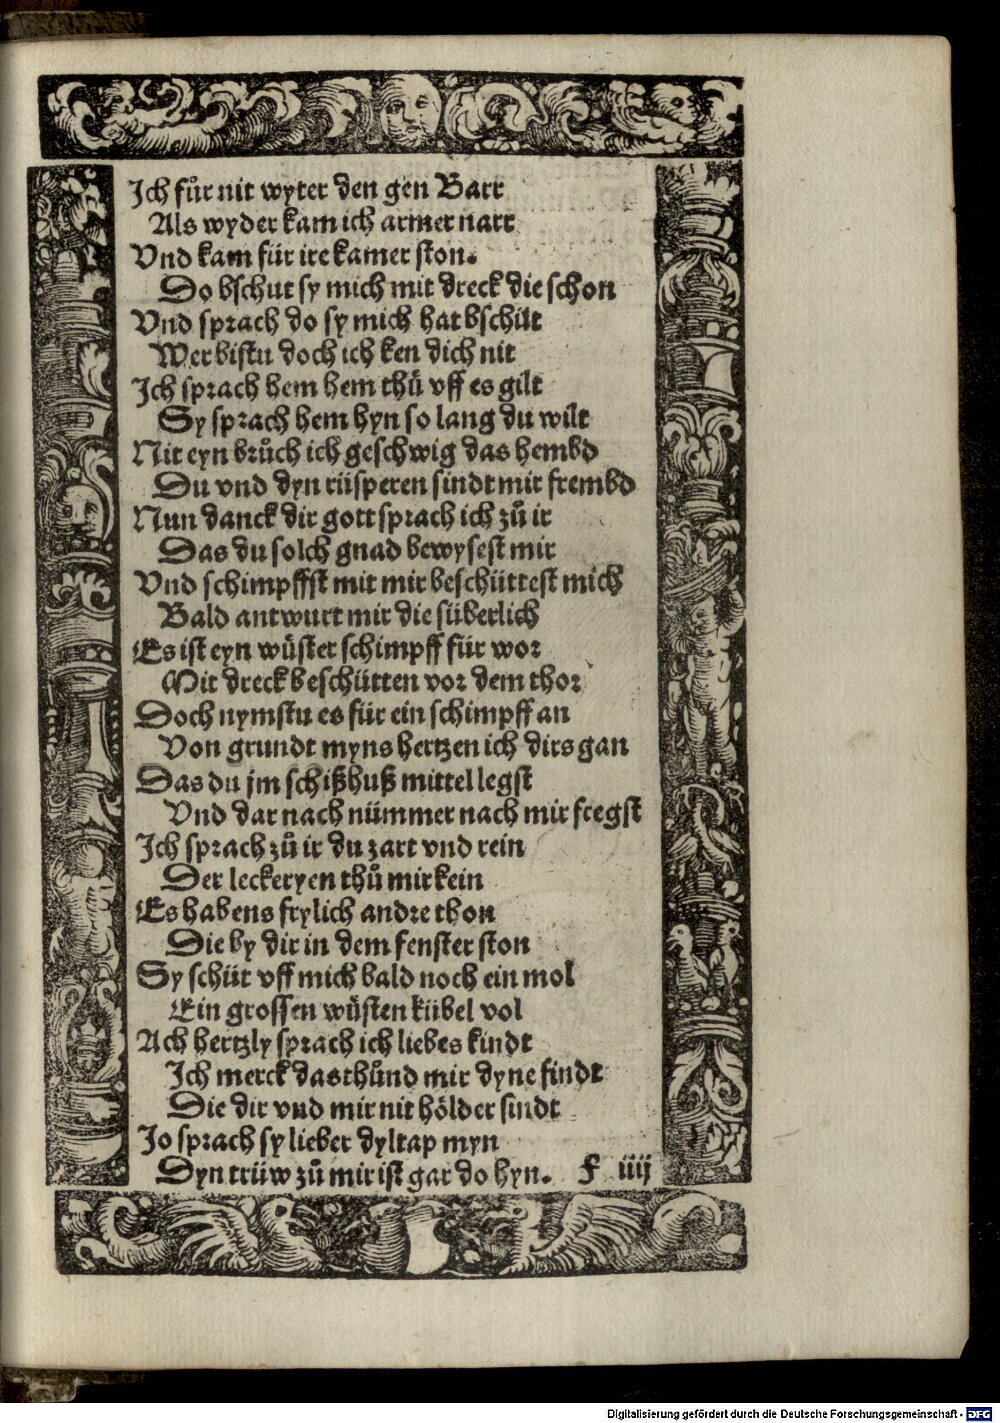 Ich fůr nit wyter den gen Barr
Als wyder kam ich armer narr
Vnd kam für ire kamer ston.
Do bschut sy mich mit dreck die schon
Vnd sprach do sy mich hat bschüt
Wer bistu doch ich ken dich nit
Ich sprach hem hem thů vff es gilt
Sy sprach hem hyn so lang du wilt
Nit eyn brůch ich geschwig das hembd
Du vnd dyn rüsperen sindt mir frembd
Nun danck dir gott sprach ich zů ir
Das du solch gnad bewysest mir
Vnd schimpffst mit mir beschüttest mich
Bald antwurt mir die süberlich
Es ist eyn wüster schimpff für wor
Mit dreck beschütten vor dem thor
Doch nymstu es für ein schimpff an
Von grundt myns hertzen ich dirs gan
Das du jm schißhuß mittel legst
Vnd dar nach nümmer nach mir fregst
Ich sprach zů ir du zart vnd rein
Der leckeryen thů mir kein
Es habens frylich andre thon
Die by dir in dem fenster ston
Sy schüt vff mich bald noch ein mol
Ein grossen wüsten kübel vol
Ach hertzly sprach ich liebes kindt
Ich merck das thůnd mir dyne findt
Die dir vnd mir nit hölder sindt
Jo sprach sy lieber dyltap myn
Dyn trüw zů mir ist gar do hyn. F iiij
Digitalisierung gefördert durch die Deutsche Forschungsgemeinschaft - DFG